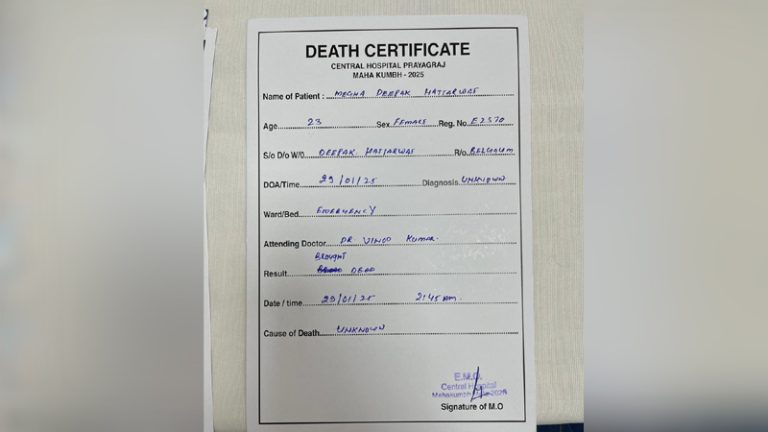 DEATH CERTIFICATE
CENTRAL HOSPITAL PRAYAGRAJ
MAHA KUMBH - 2025
Name of Patient : MEGHA DEEPAK HATTARWAT
Age 23 Sex FEMALE Reg. No. E2570
S/o D/o W/o DEEPAK HATTARWAT R/o BELGAUM
DOA/Time 29/01/25 Diagnosis UNKNOWN
Ward/Bed EMERGENCY
Attending Doctor DR. VINOD KUMAR.
BROUGHT
Result DEAD
Date / time 29/01/25 2:45 am
Cause of Death UNKNOWN
E.M.O.
Central Hospital
Mahakumbh 2025
Signature of M.O